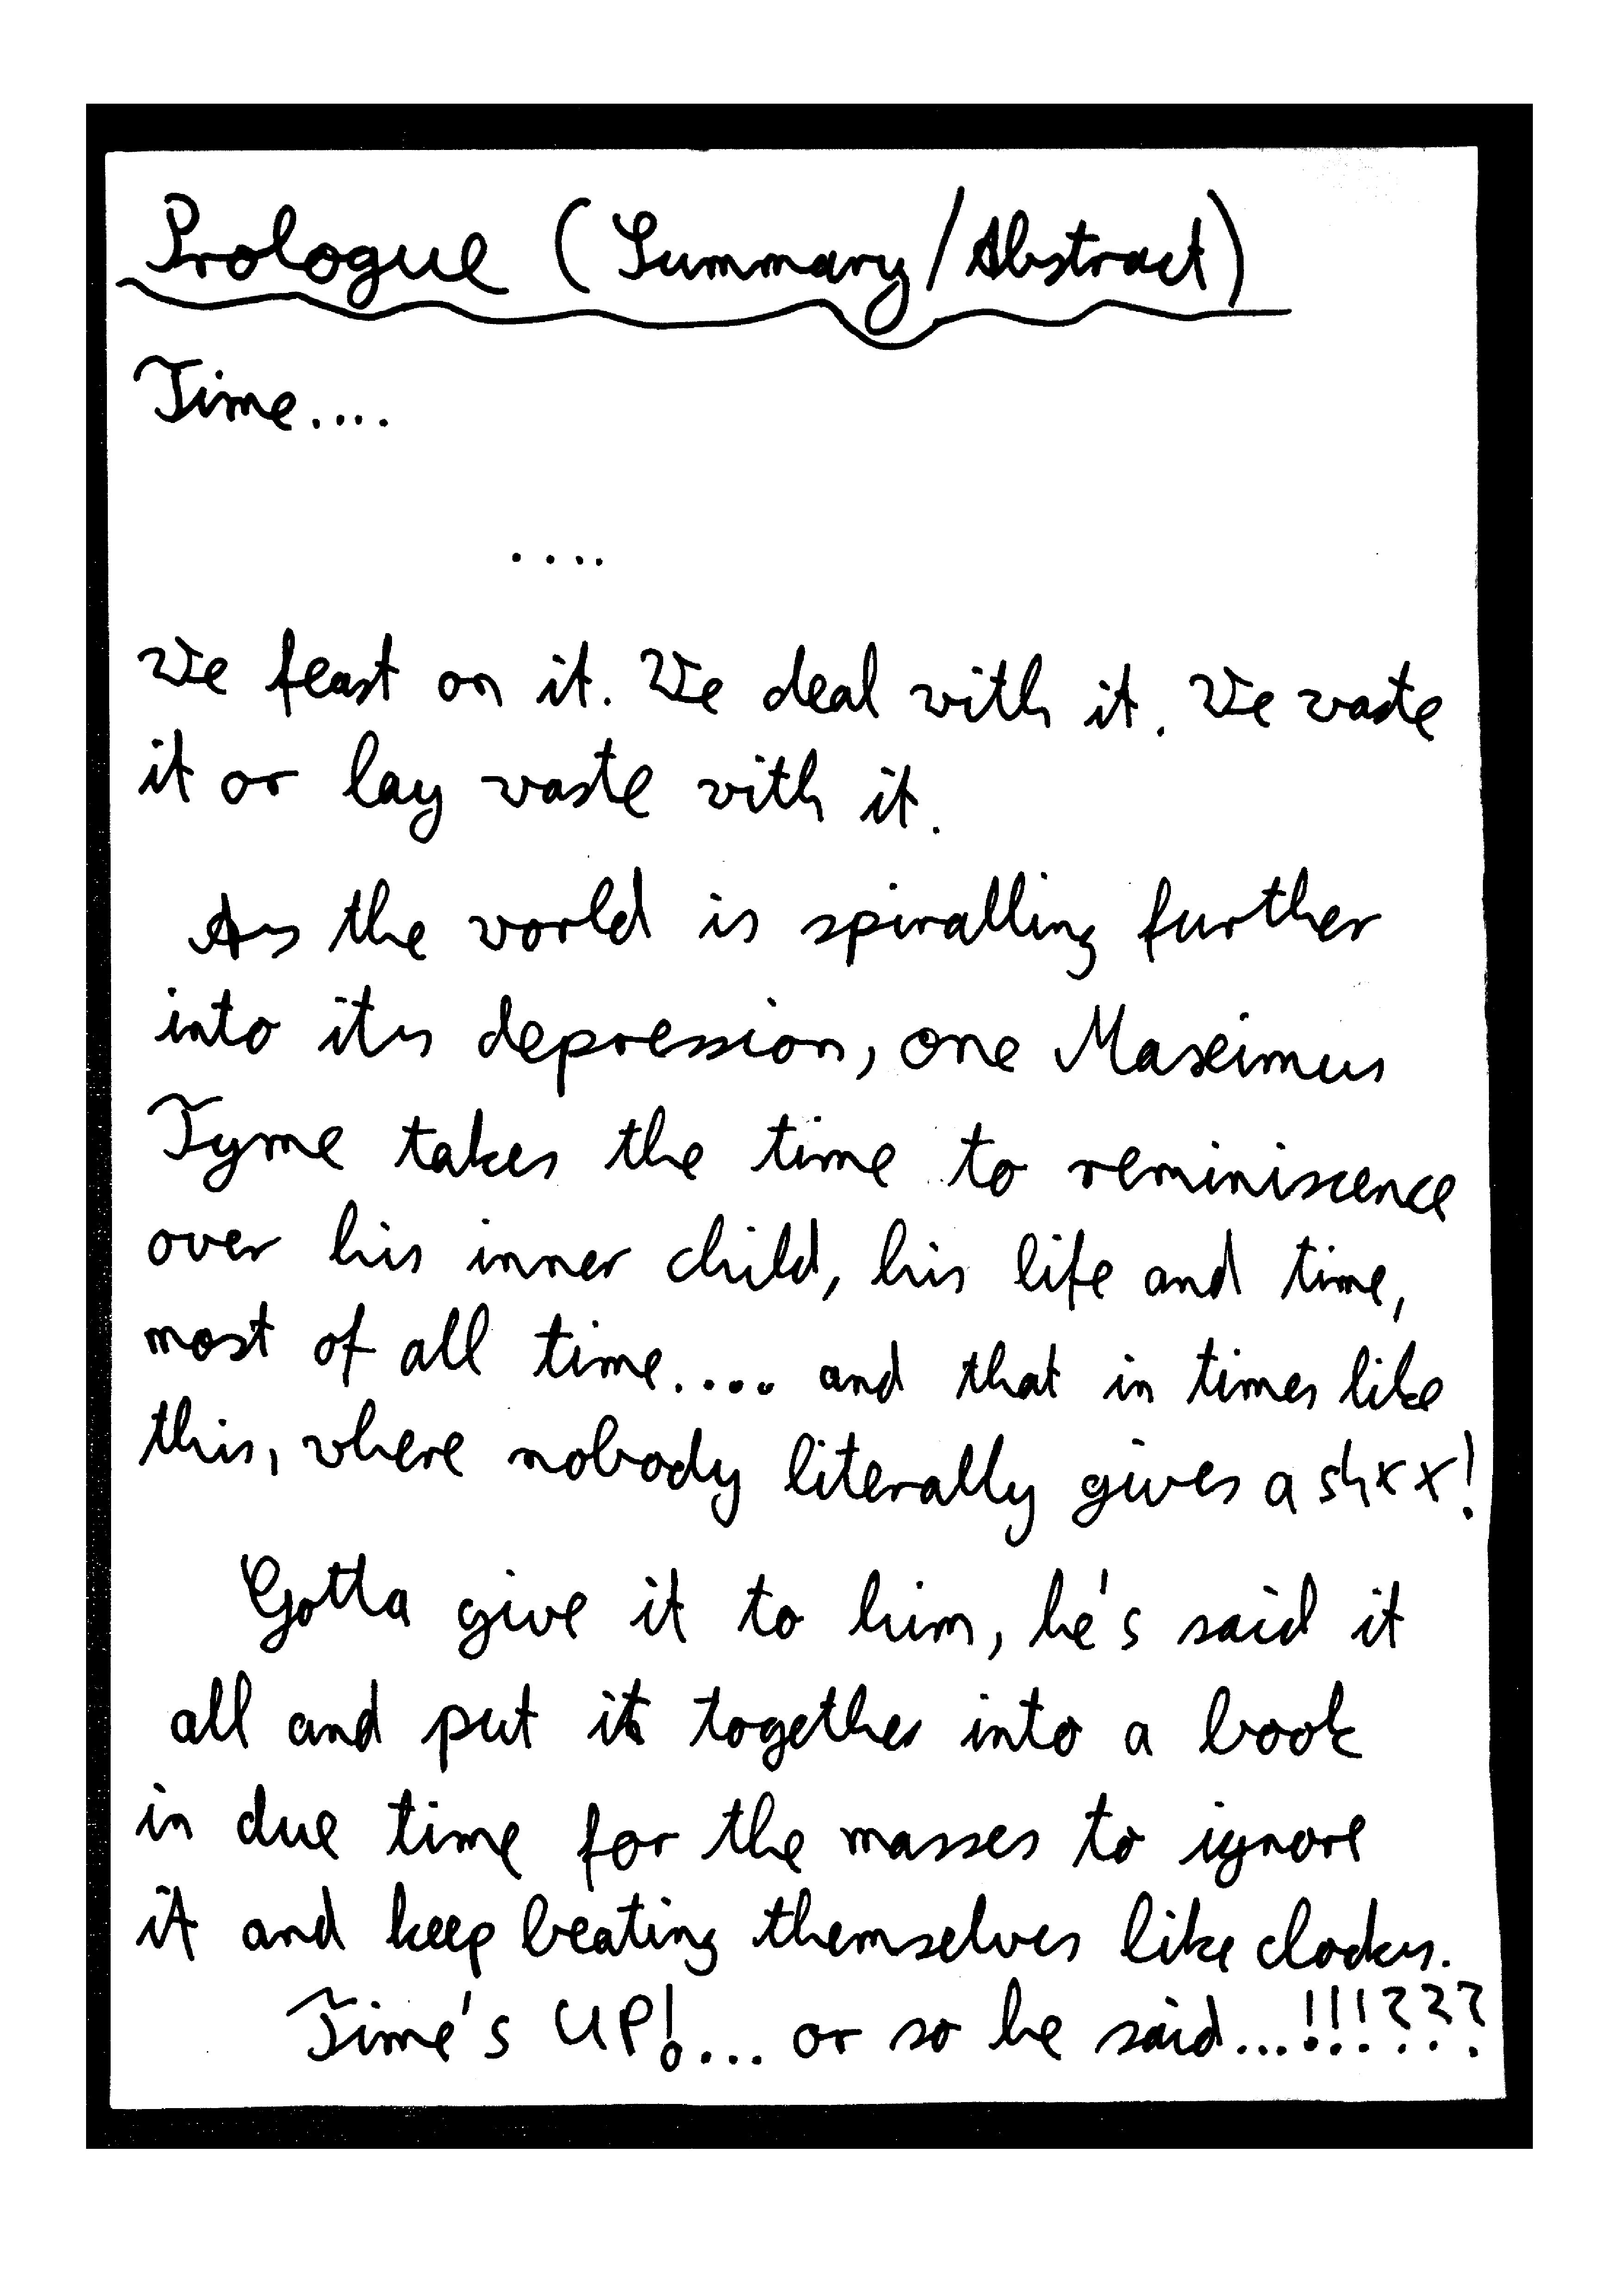 Prologue (Summary/Abstract)
Time....
....
We feast on it. We deal with it. We waste
it or lay waste with it.
As the world is spiralling further
into its depression, one Maximus
Tyme takes the time to reminiscence
over his inner child, his life and time,
most of all time.... and that in times like
this, where nobody literally gives a shxx!
Gotta give it to him, he's said it
all and put it together into a book
in due time for the masses to ignore
it and keep beating themselves like clocks.
Time's UP!... or so he said...!!!???